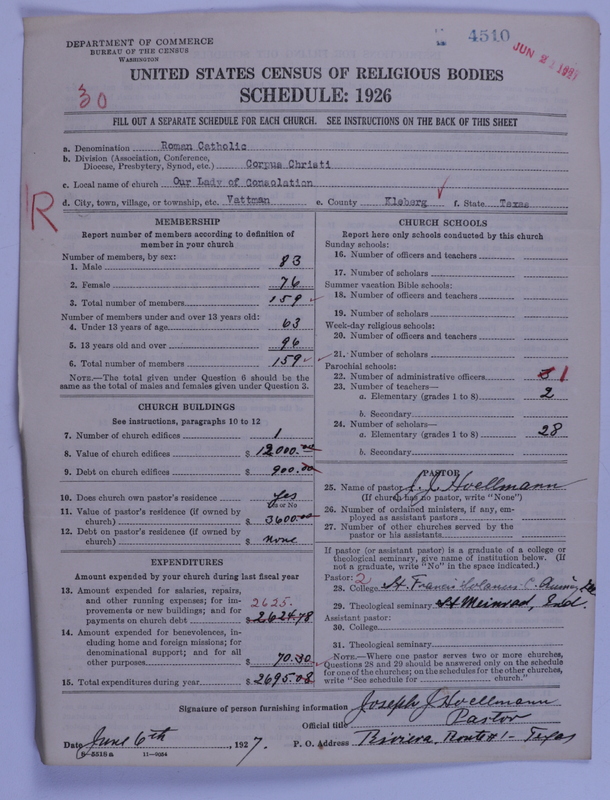 DEPARTMENT OF COMMERCE
BUREAU OF THE CENSUS
WASHINGTON
4510
JUN 2 1927
UNITED STATES CENSUS OF RELIGIOUS BODIES
SCHEDULE: 1926
30
FILL OUT A SEPARATE SCHEDULE FOR EACH CHURCH. SEE INSTRUCTIONS ON THE BACK OF THIS SHEET
a. Denomination Roman Catholic
b. Division (Association, Conference, Diocese, Presbytery, Synod, etc.) Corpus Christi
c. Local name of church Our Lady of Consolation
d. City, town, village, or township, etc. Vattman e. County Kleberg f. State Texas
R
MEMBERSHIP
Report number of members according to definition of
member in your church
Number of members, by sex:
1. Male 83
2. Female 76
3. Total number of members 159
Number of members under and over 13 years old:
4. Under 13 years of age 63
5. 13 years old and over 96
6. Total number of members 159
NOTE.—The total given under Question 6 should be the
same as the total of males and females given under Question 3.
CHURCH BUILDINGS
See instructions, paragraphs 10 to 12
7. Number of church edifices 1
8. Value of church edifices $ 12000.00
9. Debt on church edifices $ 900.00
10. Does church own pastor's residence yes
Yes or No
11. Value of pastor's residence (if owned by
church) $ 3600.00
12. Debt on pastor's residence (if owned by
church) $ none
EXPENDITURES
Amount expended by your church during last fiscal year
13. Amount expended for salaries, repairs,
and other running expenses; for im-
provements or new buildings; and for
payments on church debt 2625. $ 2624.78
14. Amount expended for benevolences, in-
cluding home and foreign missions; for
denominational support; and for all
other purposes $ 70.30
15. Total expenditures during year $ 2695.08
CHURCH SCHOOLS
Report here only schools conducted by this church
Sunday schools:
16. Number of officers and teachers
17. Number of scholars
Summer vacation Bible schools:
18. Number of officers and teachers
19. Number of scholars
Week-day religious schools:
20. Number of officers and teachers
21. Number of scholars
Parochial schools:
22. Number of administrative officers 1
23. Number of teachers—
a. Elementary (grades 1 to 8) 2
b. Secondary
24. Number of scholars—
a. Elementary (grades 1 to 8) 28
b. Secondary
PASTOR
25. Name of pastor J. J. Hoellmann
(If church has no pastor, write "None")
26. Number of ordained ministers, if any, em-
ployed as assistant pastors
27. Number of other churches served by the
pastor or his assistants
If pastor (or assistant pastor) is a graduate of a college or
theological seminary, give name of institution below. (If
not a graduate, write "No" in the space indicated.)
Pastor: 2
28. College St. Francis Solanus C. Quincy, Ill
29. Theological seminary St Meinrad, Ind.
Assistant pastor:
30. College
31. Theological seminary
NOTE.—Where one pastor serves two or more churches,
Questions 28 and 29 should be answered only on the schedule
for one of the churches; on the schedules for the other churches,
write "See schedule for church."
Signature of person furnishing information Joseph J Hoellmann
Official title Pastor
Date June 6th, 1927. P. O. Address Riviera, Route #1 - Texas
8-5518a 11-9084